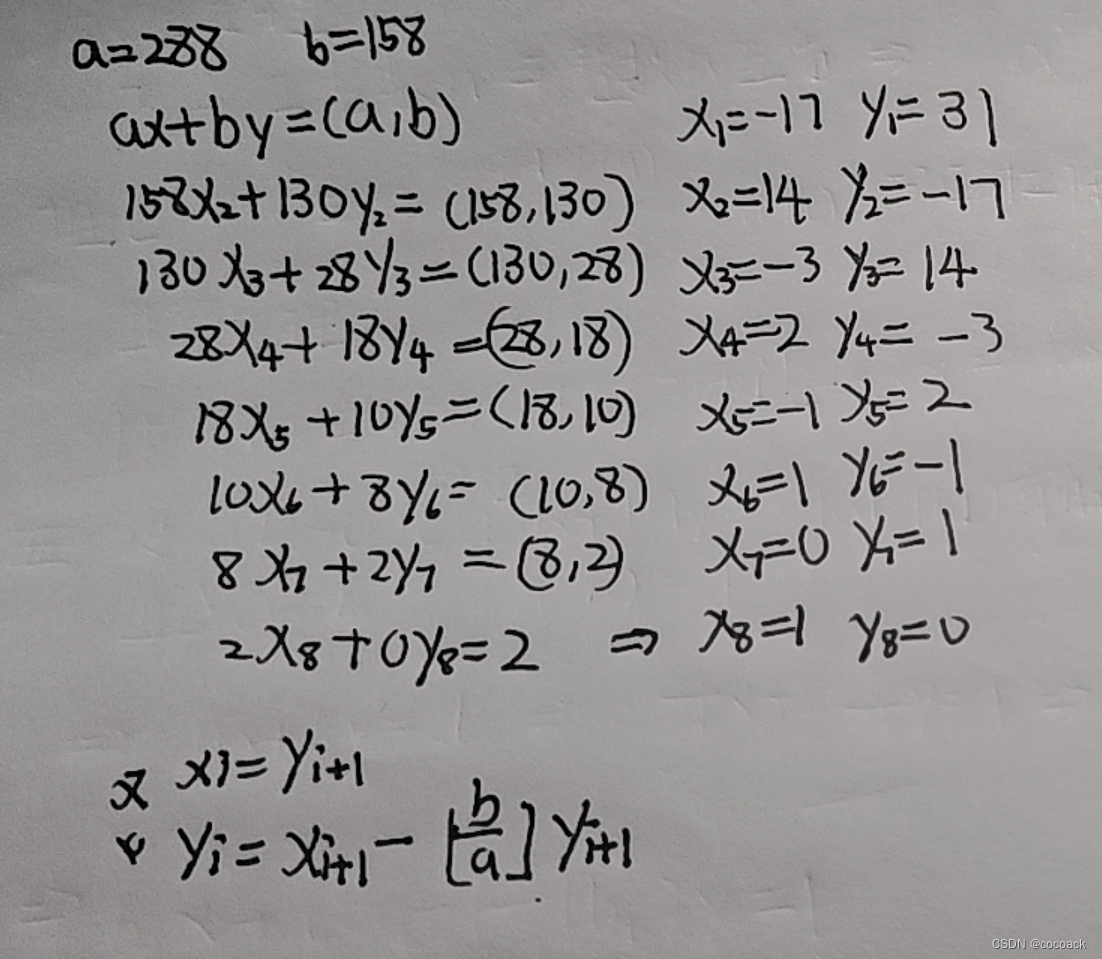 a=288 b=158
ax+by=(a,b) x₁=-17 y₁=31
158x₂+130y₂=(158,130) x₂=14 y₂=-17
130x₃+28y₃=(130,28) x₃=-3 y₃=14
28x₄+18y₄=(28,18) x₄=2 y₄=-3
18x₅+10y₅=(18,10) x₅=-1 y₅=2
10x₆+8y₆=(10,8) x₆=1 y₆=-1
8x₇+2y₇=(8,2) x₇=0 y₇=1
2x₈+0y₈=2 ⇒ x₈=1 y₈=0
xi=yi+1
yi=xi+1-[b/a]yi+1
CSDN @cocoack